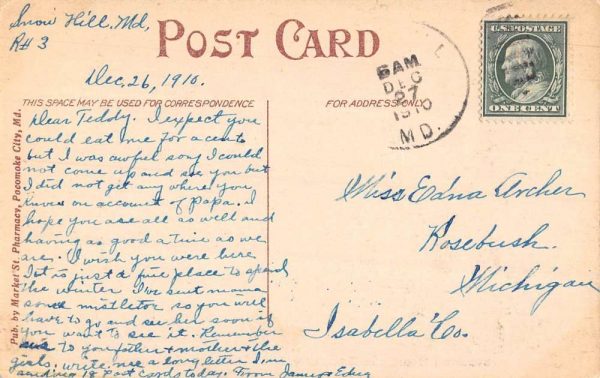 Snow Hill, Md,
R#3
Dec, 26, 1910.
POST CARD
THIS SPACE MAY BE USED FOR CORRESPONDENCE
FOR ADDRESS ONLY
U.S. POSTAGE
ONE CENT
6 AM
DEC
27
1910
MD.
Dear Teddy. I expect you
could eat me for a cent
but I was awful sory I could
not come up and see you but
I did not get any where you
knows on account of Papa. I
hope you are all as well and
having as good a time as we
are. I wish you were here
It is just a fine place to spend
the winter I've sent mama
some mistletoe so you will
have to go and see her soon if
you want to see it. Remember
me to your father & mother & the
girls, write me a long letter I'm
sending 18 Post Cards today. From
Miss Edna Archer
Rosebush.
Michigan
Isabella Co.
Pub. by Market St. Pharmacy, Pocomoke City, Md.